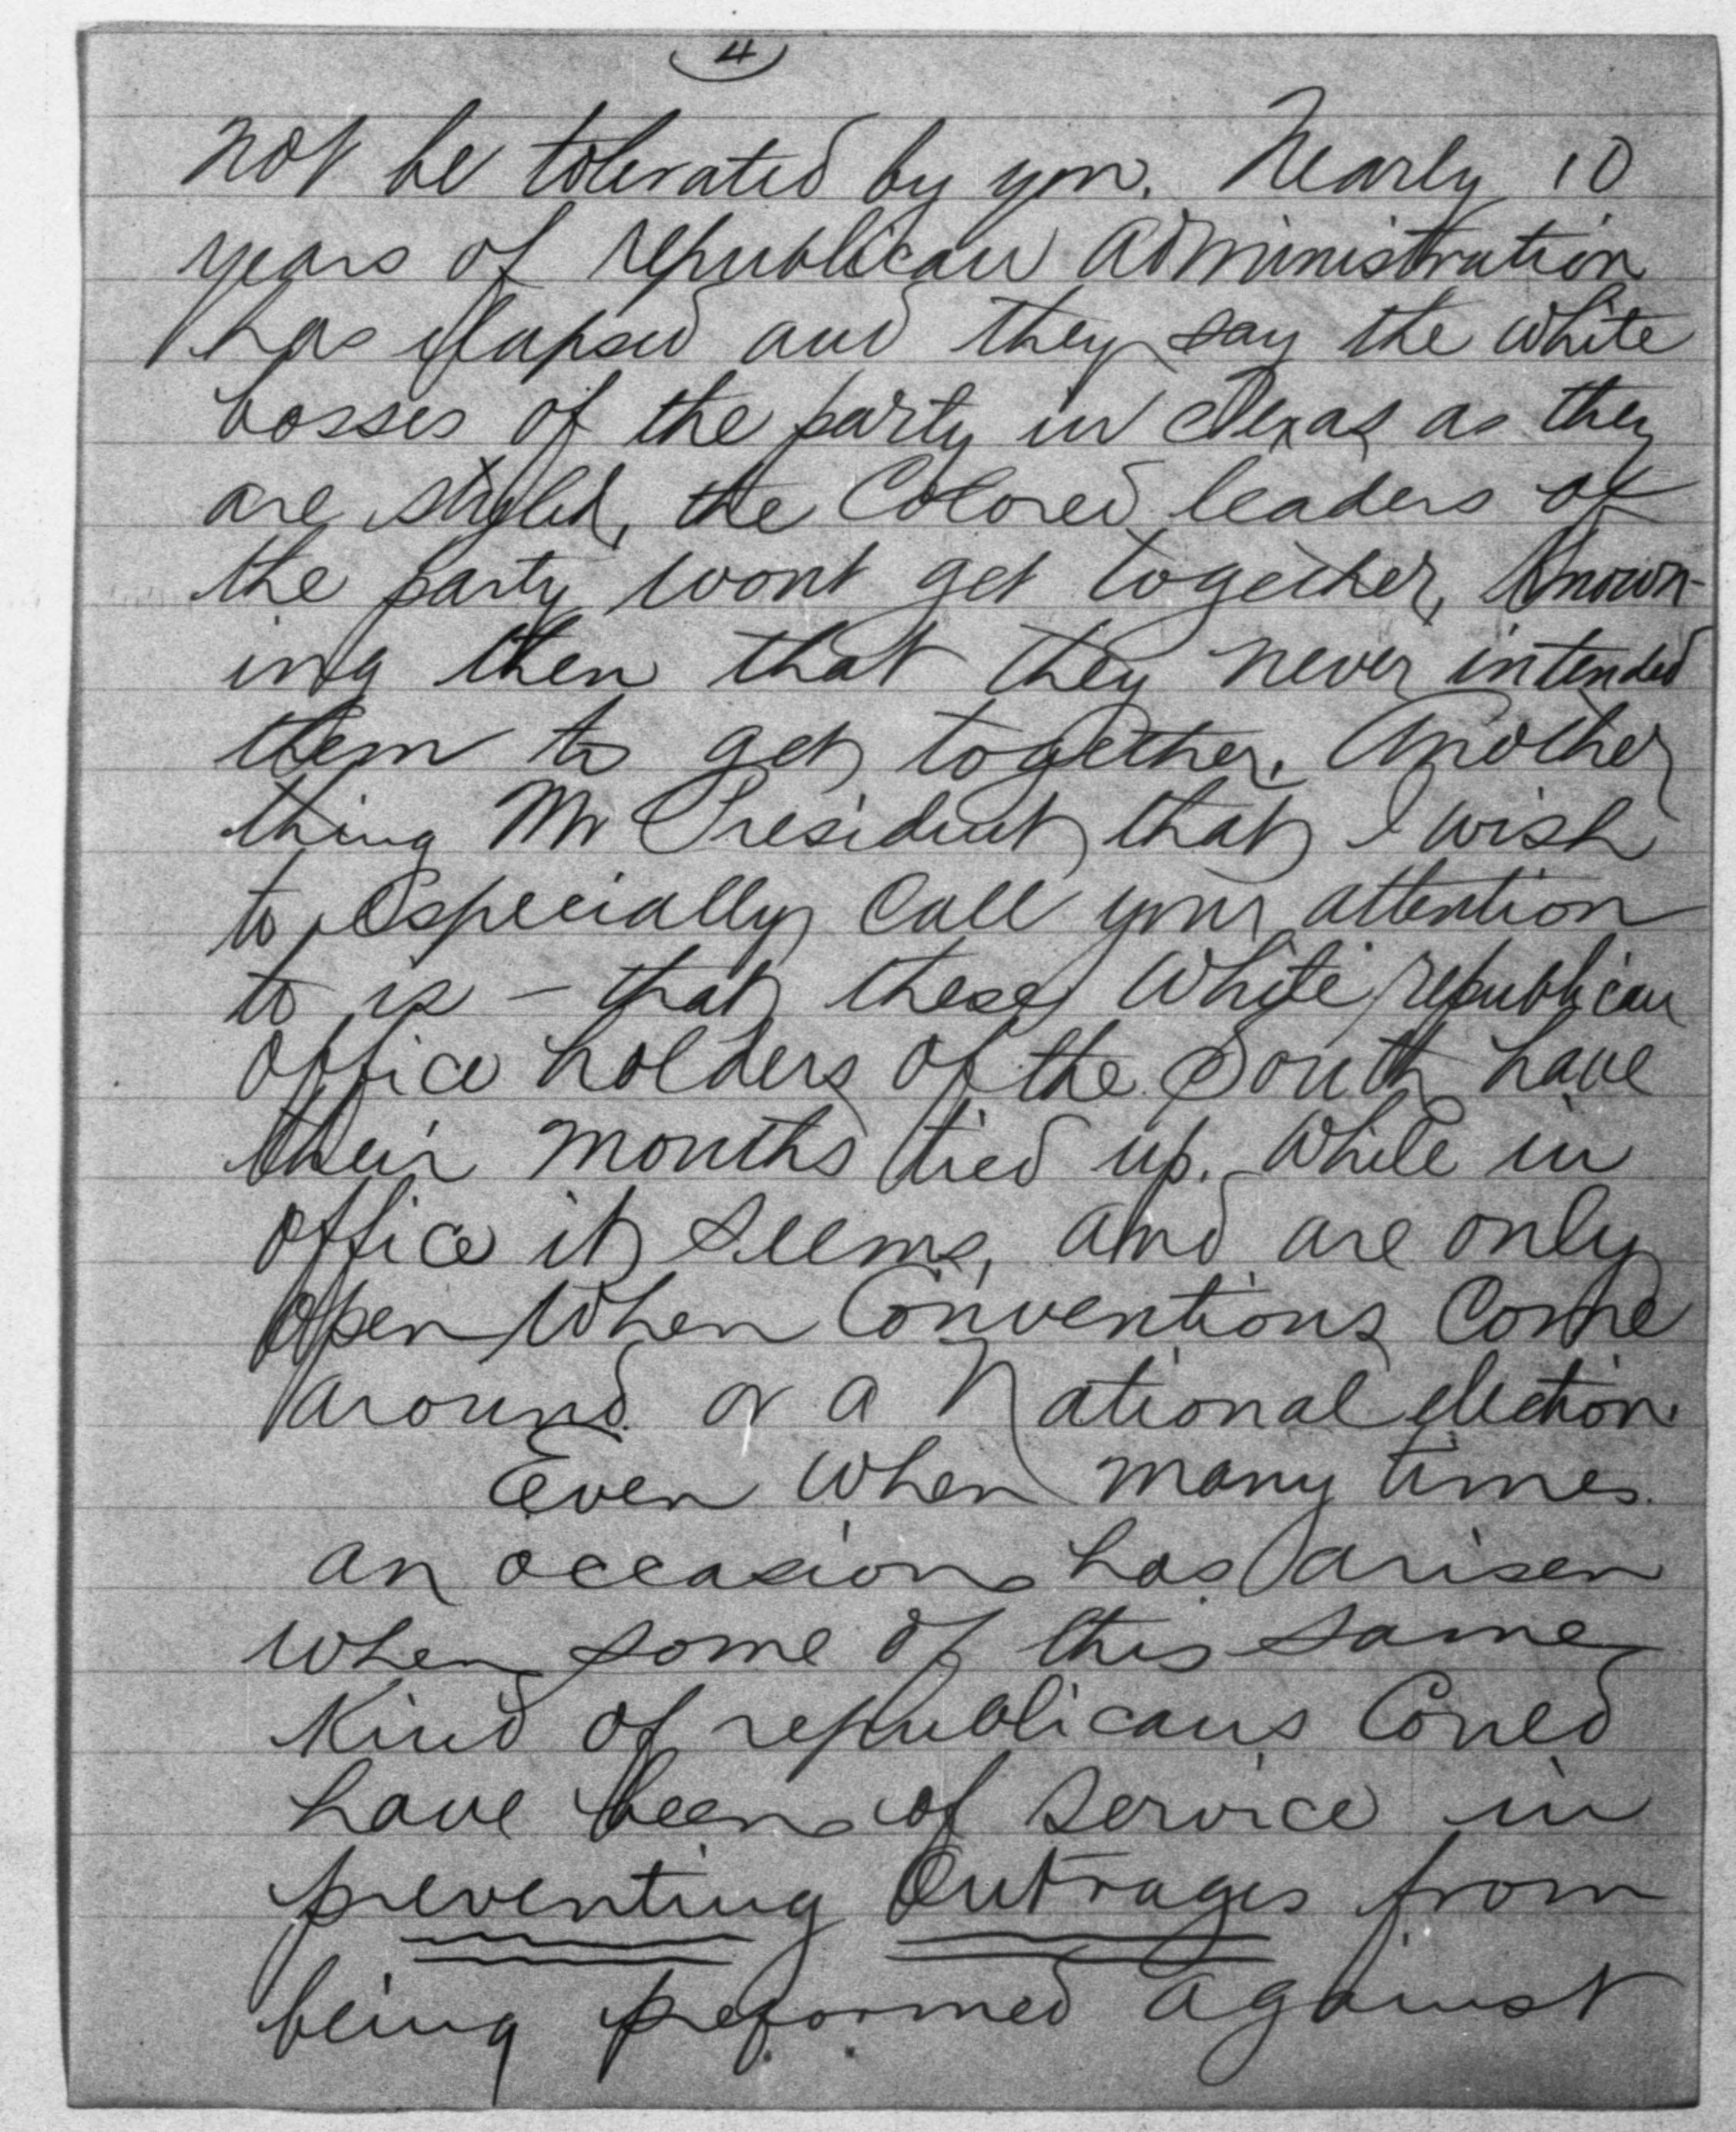 4
not be tolerated by you. Nearly 10
years of republican administration
has elapsed and they say the white
bosses of the party in Texas as they
are styled, the Colored leaders of
the party wont get together, Known-
ing then that they never intended
them to get together. Another
thing Mr President that I wish
to especially call your attention
to is - that these white republican
office holders of the South have
their mouths tied up. while in
office it seems, and are only
open when Conventions Come
around or a National election.
Even when many times
an occasion has arisen
when some of this same
kind of republicans Could
have been of service in
preventing Outrages from
being preformed against